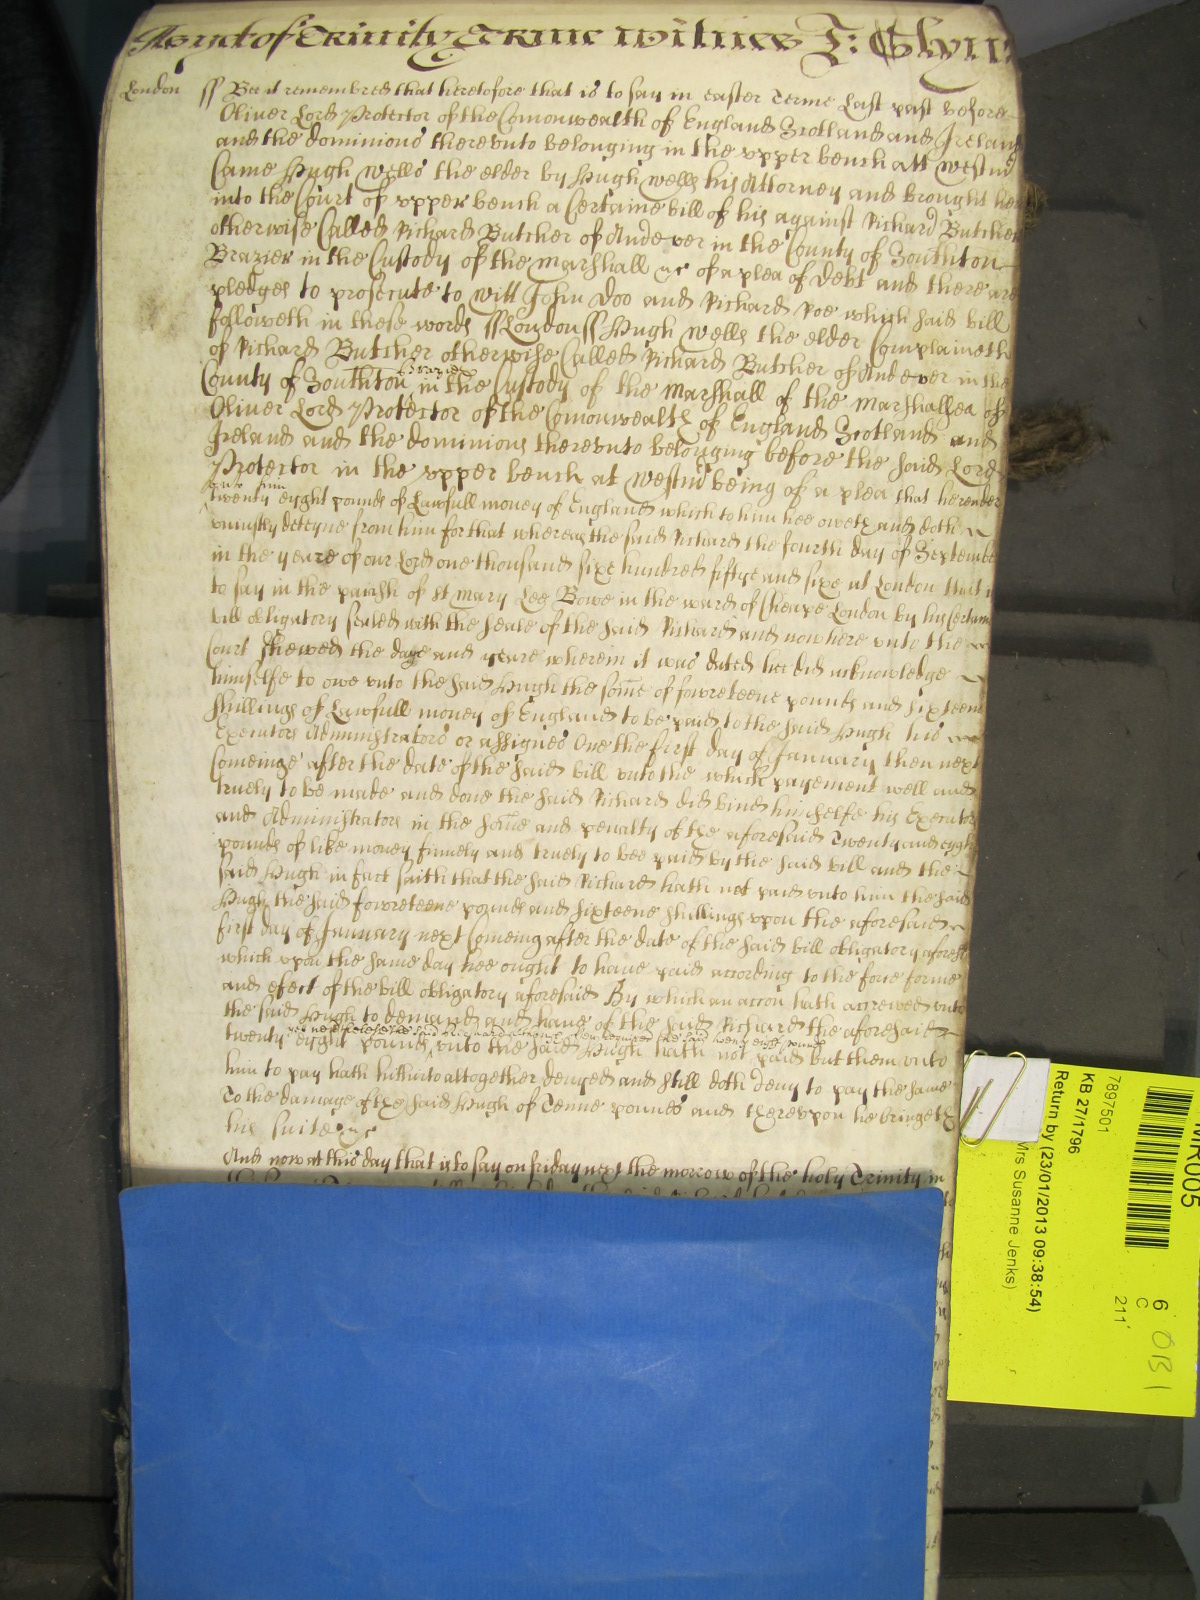 As yet of Trinity Terme Witnes J: Glyn
London ss Bee it remembred that heretofore that is to say in Easter Terme Last past before
Oliver Lord Protector of the Comonwealth of England Scotland and Ireland
and the dominions therevnto belonging in the vpper bench att Westmr
Came Hugh Wells the elder by Hugh Wells his Attorney and brought here
into the Court of vpper bench a Certaine bill of his against Richard Butcher
otherwise Called Richard Butcher of Andever in the County of Southton
Brazier in the Custody of the Marshall &c of a plea of Debt and there are
pledges to prosecute to witt John Doo and Richard Roe which said bill
followeth in these words ss London ss Hugh Wells the elder Complaineth
of Richard Butcher otherwise Called Richard Butcher of Andever in the
County of Southton Brazier in the Custody of the Marshall of the Marshallsea of
Oliver Lord Protector of the Comonwealth of England Scotland and
Ireland and the dominions therevnto belonging before the said Lord
Protector in the vpper bench at Westmr being of a plea that hee render
vnto him
twenty eight pounds of Lawfull money of England which to him hee oweth and doth
vniustly deteyne from him for that whereas the said Richard the fourth day of September
in the yeare of our Lord one thousand sixe hundred fiftye and sixe at London that is
to say in the parish of St Mary Lee Bowe in the ward of Cheape London by his Certain
bill obligatory sealed with the seale of the said Richard and now here vnto the
Court shewed the daye and yeare wherein it was dated hee did acknowledge
himselfe to owe vnto the said Hugh the some of fowreteene pounds and sixteene
shillings of Lawfull money of England to be paid to the said Hugh his
Executors Administrators or assignes One the first day of January then next
Comeing after the date of the said bill vnto the which payement well and
truely to be made and done the said Richard did binde himselfe his Executors
and Administrators in the some and penalty of the aforesaid Twenty and eyght
pounds of like money firmely and truely to bee paid by the said bill and the
said Hugh in fact saith that the said Richard hath not paid vnto him the said
Hugh the said fowreteene pounds and sixteene shillings vpon the aforesaid
first day of January next Comeing after the date of the said bill obligatory aforesd
which vpon the same day hee ought to haue paid according to the force forme
and efect of the bill obligatory aforesaid By which an accon hath accrewed vnto
the said Hugh to demand and haue of the said Richard the aforesaid
twenty eight pounds vnto the said Hugh hath not paid but them vnto
him to pay hath hitherto altogether denyed and still doth deny to pay the same
To the damage of the said Hugh of Tenne pounds and therevpon he bringeth
his suite &c
And now at this day that is to say on friday next the morrow of the holy Trinity in
MR005
7897501
KB 27/1796
Return by (23/01/2013 09:38:54)
Mrs Susanne Jenks)
6
C
211
OB1